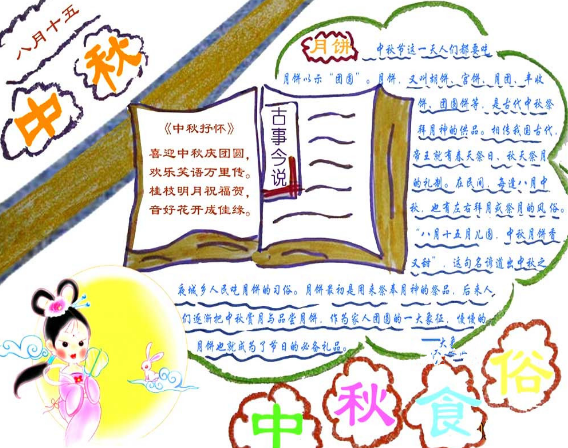 八月十五
中秋
《中秋抒怀》
喜迎中秋庆团圆，
欢乐笑语万里传。
桂枝明月祝福贺，
音好花开成佳缘。
古事今说
月饼
中秋节这一天人们都要吃
月饼以示“团圆”。月饼，又叫胡饼、宫饼、月团、丰收
饼、团圆饼等，是古代中秋祭
拜月神的供品。相传我国古代，
帝王就有春天祭日，秋天祭月
的礼制。在民间，每逢八月中
秋，也有左右拜月或祭月的风俗。
“八月十五月儿圆，中秋月饼香
又甜”，这句名谚道出中秋之
夜城乡人民吃月饼的习俗。月饼最初是用来祭奉月神的祭品，后来人
们逐渐把中秋赏月与品尝月饼，作为家人团圆的一大象征，慢慢的
月饼也就成为了节日的必备礼品。
中秋食俗